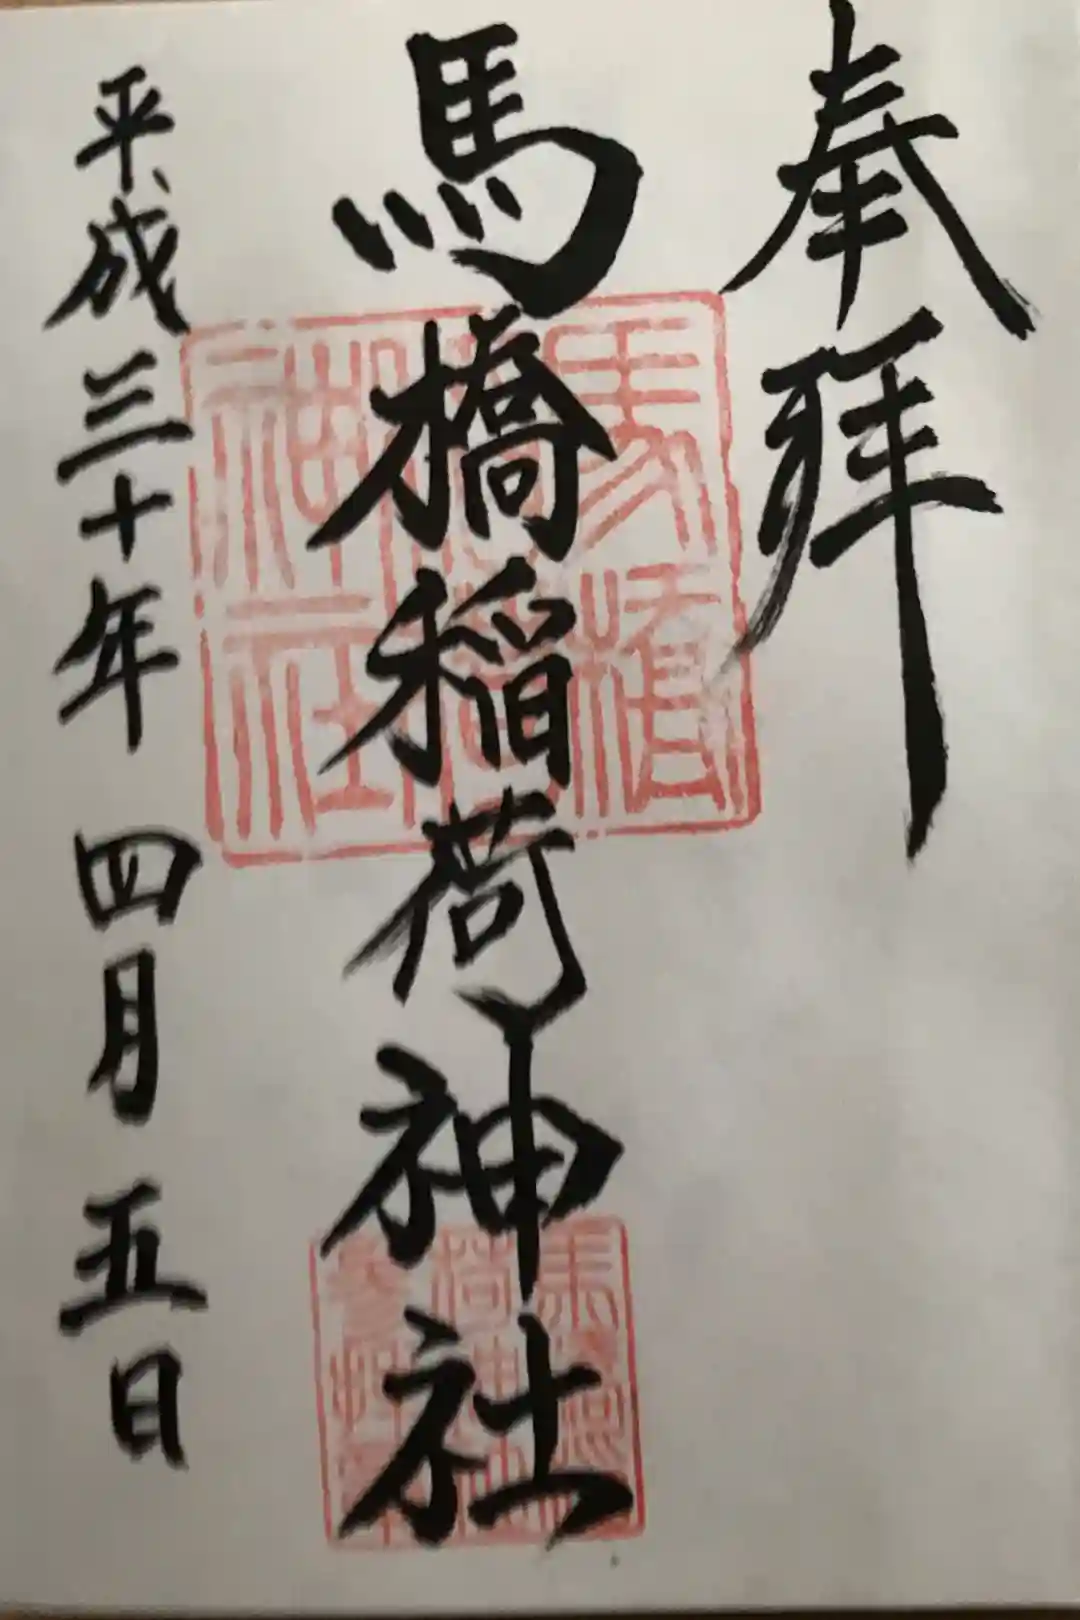 奉拝
馬橋稲荷神社
平成三十年 四月 五日
馬橋
稲荷
神社